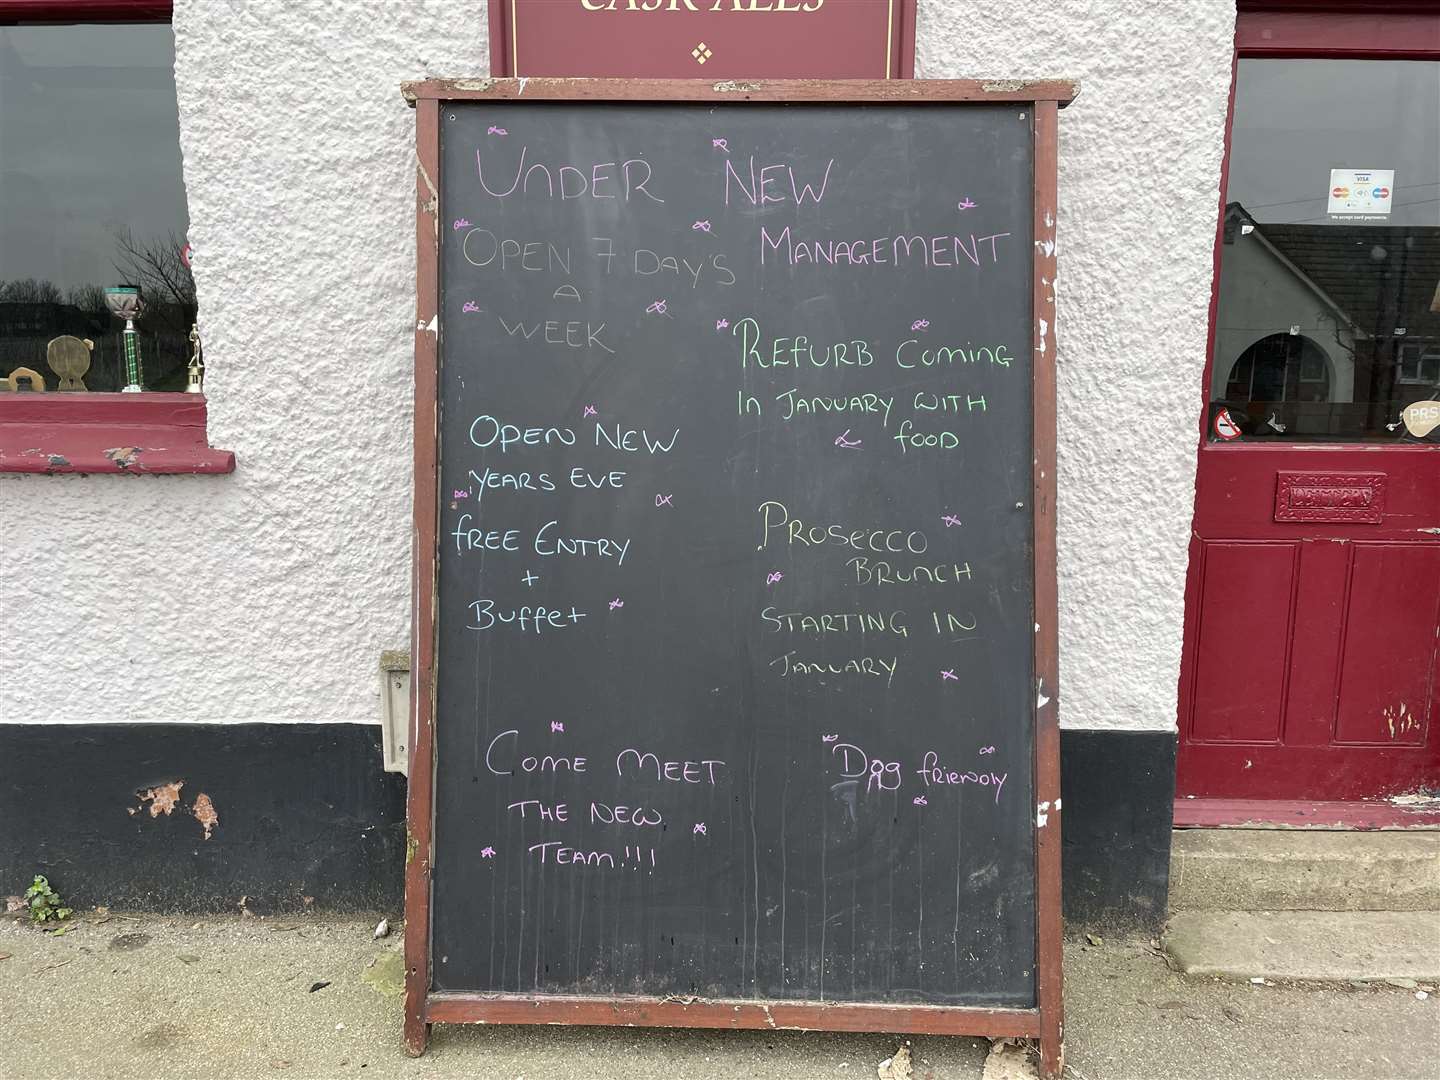 CASK ALES
UNDER NEW
MANAGEMENT
OPEN 7 DAY'S
A
WEEK
REFURB COMING
IN JANUARY WITH
FOOD
OPEN NEW
YEARS EVE
FREE ENTRY
+
Buffet
PROSECCO
BRUNCH
STARTING IN
JANUARY
COME MEET
THE NEW
TEAM!!!
Dog friendly
VISA
We accept card payments
PRS